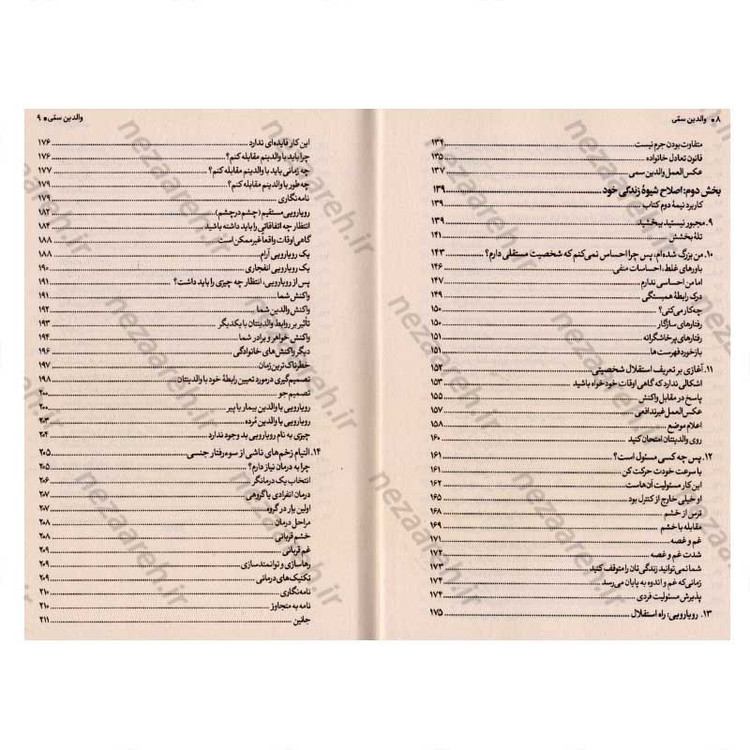 ۸ • والدین سمّی
متفاوت بودن جرم نیست ۱۳۴
قانون تعادل خانواده ۱۳۵
عکس‌العمل والدین سمی ۱۳۷
بخش دوم: اصلاح شیوهٔ زندگی خود ۱۳۹
کاربرد نیمهٔ دوم کتاب
۹. مجبور نیستید ببخشید ۱۳۹
تلهٔ بخشش ۱۴۱
۱۰. من بزرگ شده‌ام، پس چرا احساس نمی‌کنم که شخصیت مستقلی دارم؟ ۱۴۳
باورهای غلط، احساسات منفی ۱۴۶
اما من احساسی ندارم ۱۴۷
درک رابطهٔ همبستگی ۱۴۹
چه‌کار می‌کنی؟ ۱۵۰
رفتارهای سازگار ۱۵۰
رفتارهای پرخاشگرانه ۱۵۱
بازخورد فهرست‌ها ۱۵۱
۱۱. آغازی بر تعریف استقلال شخصیتی ۱۵۲
اشکالی ندارد که گاهی اوقات خودخواه باشید ۱۵۳
پاسخ در مقابل واکنش ۱۵۵
عکس‌العمل غیرتدافعی ۱۵۷
اعلام موضع ۱۵۸
روی والدینتان امتحان کنید ۱۶۰
۱۲. پس چه کسی مسئول است؟ ۱۶۱
با سرعت خودت حرکت کن ۱۶۱
این کار مسئولیت آن‌هاست ۱۶۲
او خیلی خارج از کنترل بود ۱۶۵
ترس از خشم ۱۶۸
مقابله با خشم ۱۶۹
غم و غصه
شدت غم و غصه ۱۷۲
شما نمی‌توانید زندگی‌تان را متوقف کنید ۱۷۳
زمانی‌که غم و اندوه به پایان می‌رسد ۱۷۴
پذیرش مسئولیت فردی ۱۷۴
۱۳. رویارویی: راه استقلال ۱۷۵
والدین سمّی • ۹
این کار فایده‌ای ندارد ۱۷۶
چرا باید با والدینم مقابله کنم؟ ۱۷۶
چه زمانی باید با والدینم مقابله کنم؟ ۱۷۷
چه‌طور با والدینم مقابله کنم؟ ۱۷۹
نامه‌نگاری
رویارویی مستقیم (چشم در چشم) ۱۸۲
انتظار چه اتفاقاتی را باید داشته باشید ۱۸۴
گاهی اوقات واقعاً غیرممکن است ۱۸۸
یک رویارویی آرام ۱۸۸
یک رویارویی انفجاری ۱۹۰
پس از رویارویی، انتظار چه چیزی را باید داشت؟ ۱۹۱
واکنش شما ۱۹۱
واکنش والدین شما ۱۹۲
تأثیر بر روابط والدینتان با یکدیگر ۱۹۳
واکنش خواهر و برادر شما ۱۹۴
دیگر واکنش‌های خانوادگی ۱۹۶
خطرناک‌ترین زمان ۱۹۷
تصمیم‌گیری درمورد تعیین رابطهٔ خود با والدینتان ۱۹۸
تصمیم جو ۲۰۰
رویارویی با والدین بیمار یا پیر ۲۰۰
رویارویی با والدین مُرده ۲۰۳
چیزی به نام رویارویی بد وجود ندارد ۲۰۴
۱۴. التیام زخم‌های ناشی از سوءرفتار جنسی ۲۰۵
چرا به درمان نیاز دارم؟ ۲۰۵
انتخاب یک درمانگر ۲۰۶
درمان انفرادی یا گروهی ۲۰۷
اولین بار در گروه ۲۰۷
مراحل درمان ۲۰۸
خشم قربانی ۲۰۸
غم قربانی ۲۰۹
رهاسازی و توانمندسازی ۲۰۹
تکنیک‌های درمانی ۲۰۹
نامه‌نگاری ۲۱۰
نامه به متجاوز ۲۱۰
جانین ۲۱۱
nezaareh.ir